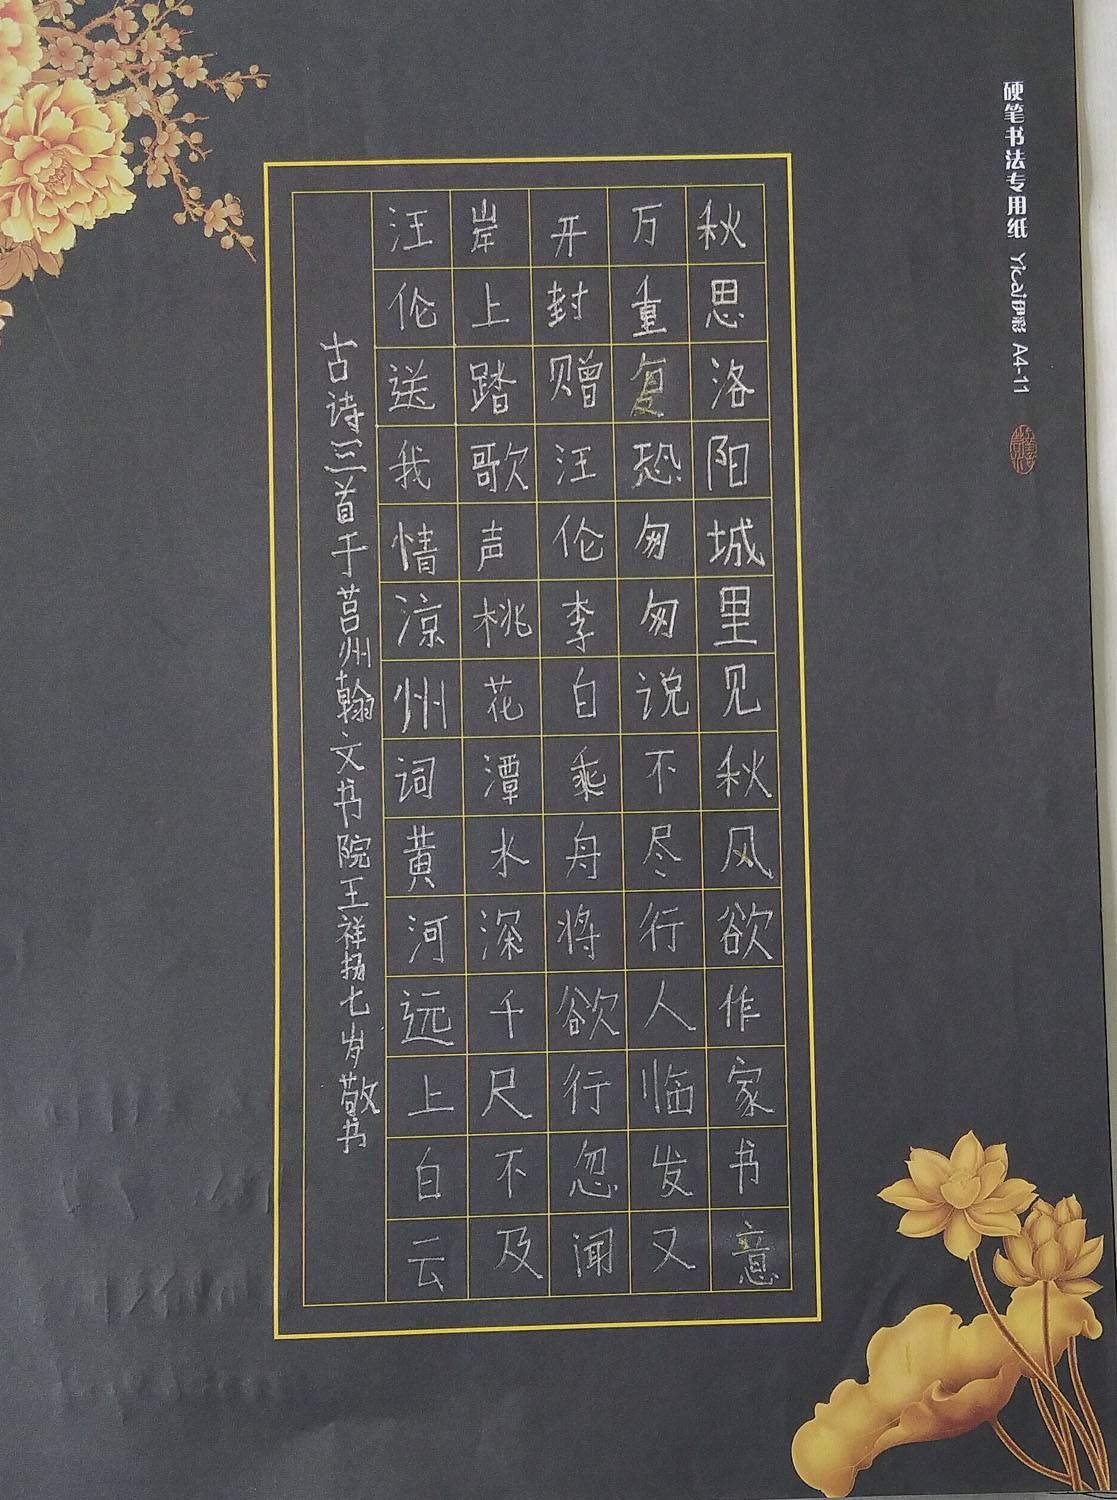 硬笔书法专用纸 Yicai伊彩 A4-11
秋思洛阳城里见秋风欲作家书意
万重复恐匆匆说不尽行人临发又
开封赠汪伦李白乘舟将欲行忽闻
岸上踏歌声桃花潭水深千尺不及
汪伦送我情凉州词黄河远上白云
古诗三首于莒州翰文书院王祥扬七岁敬书